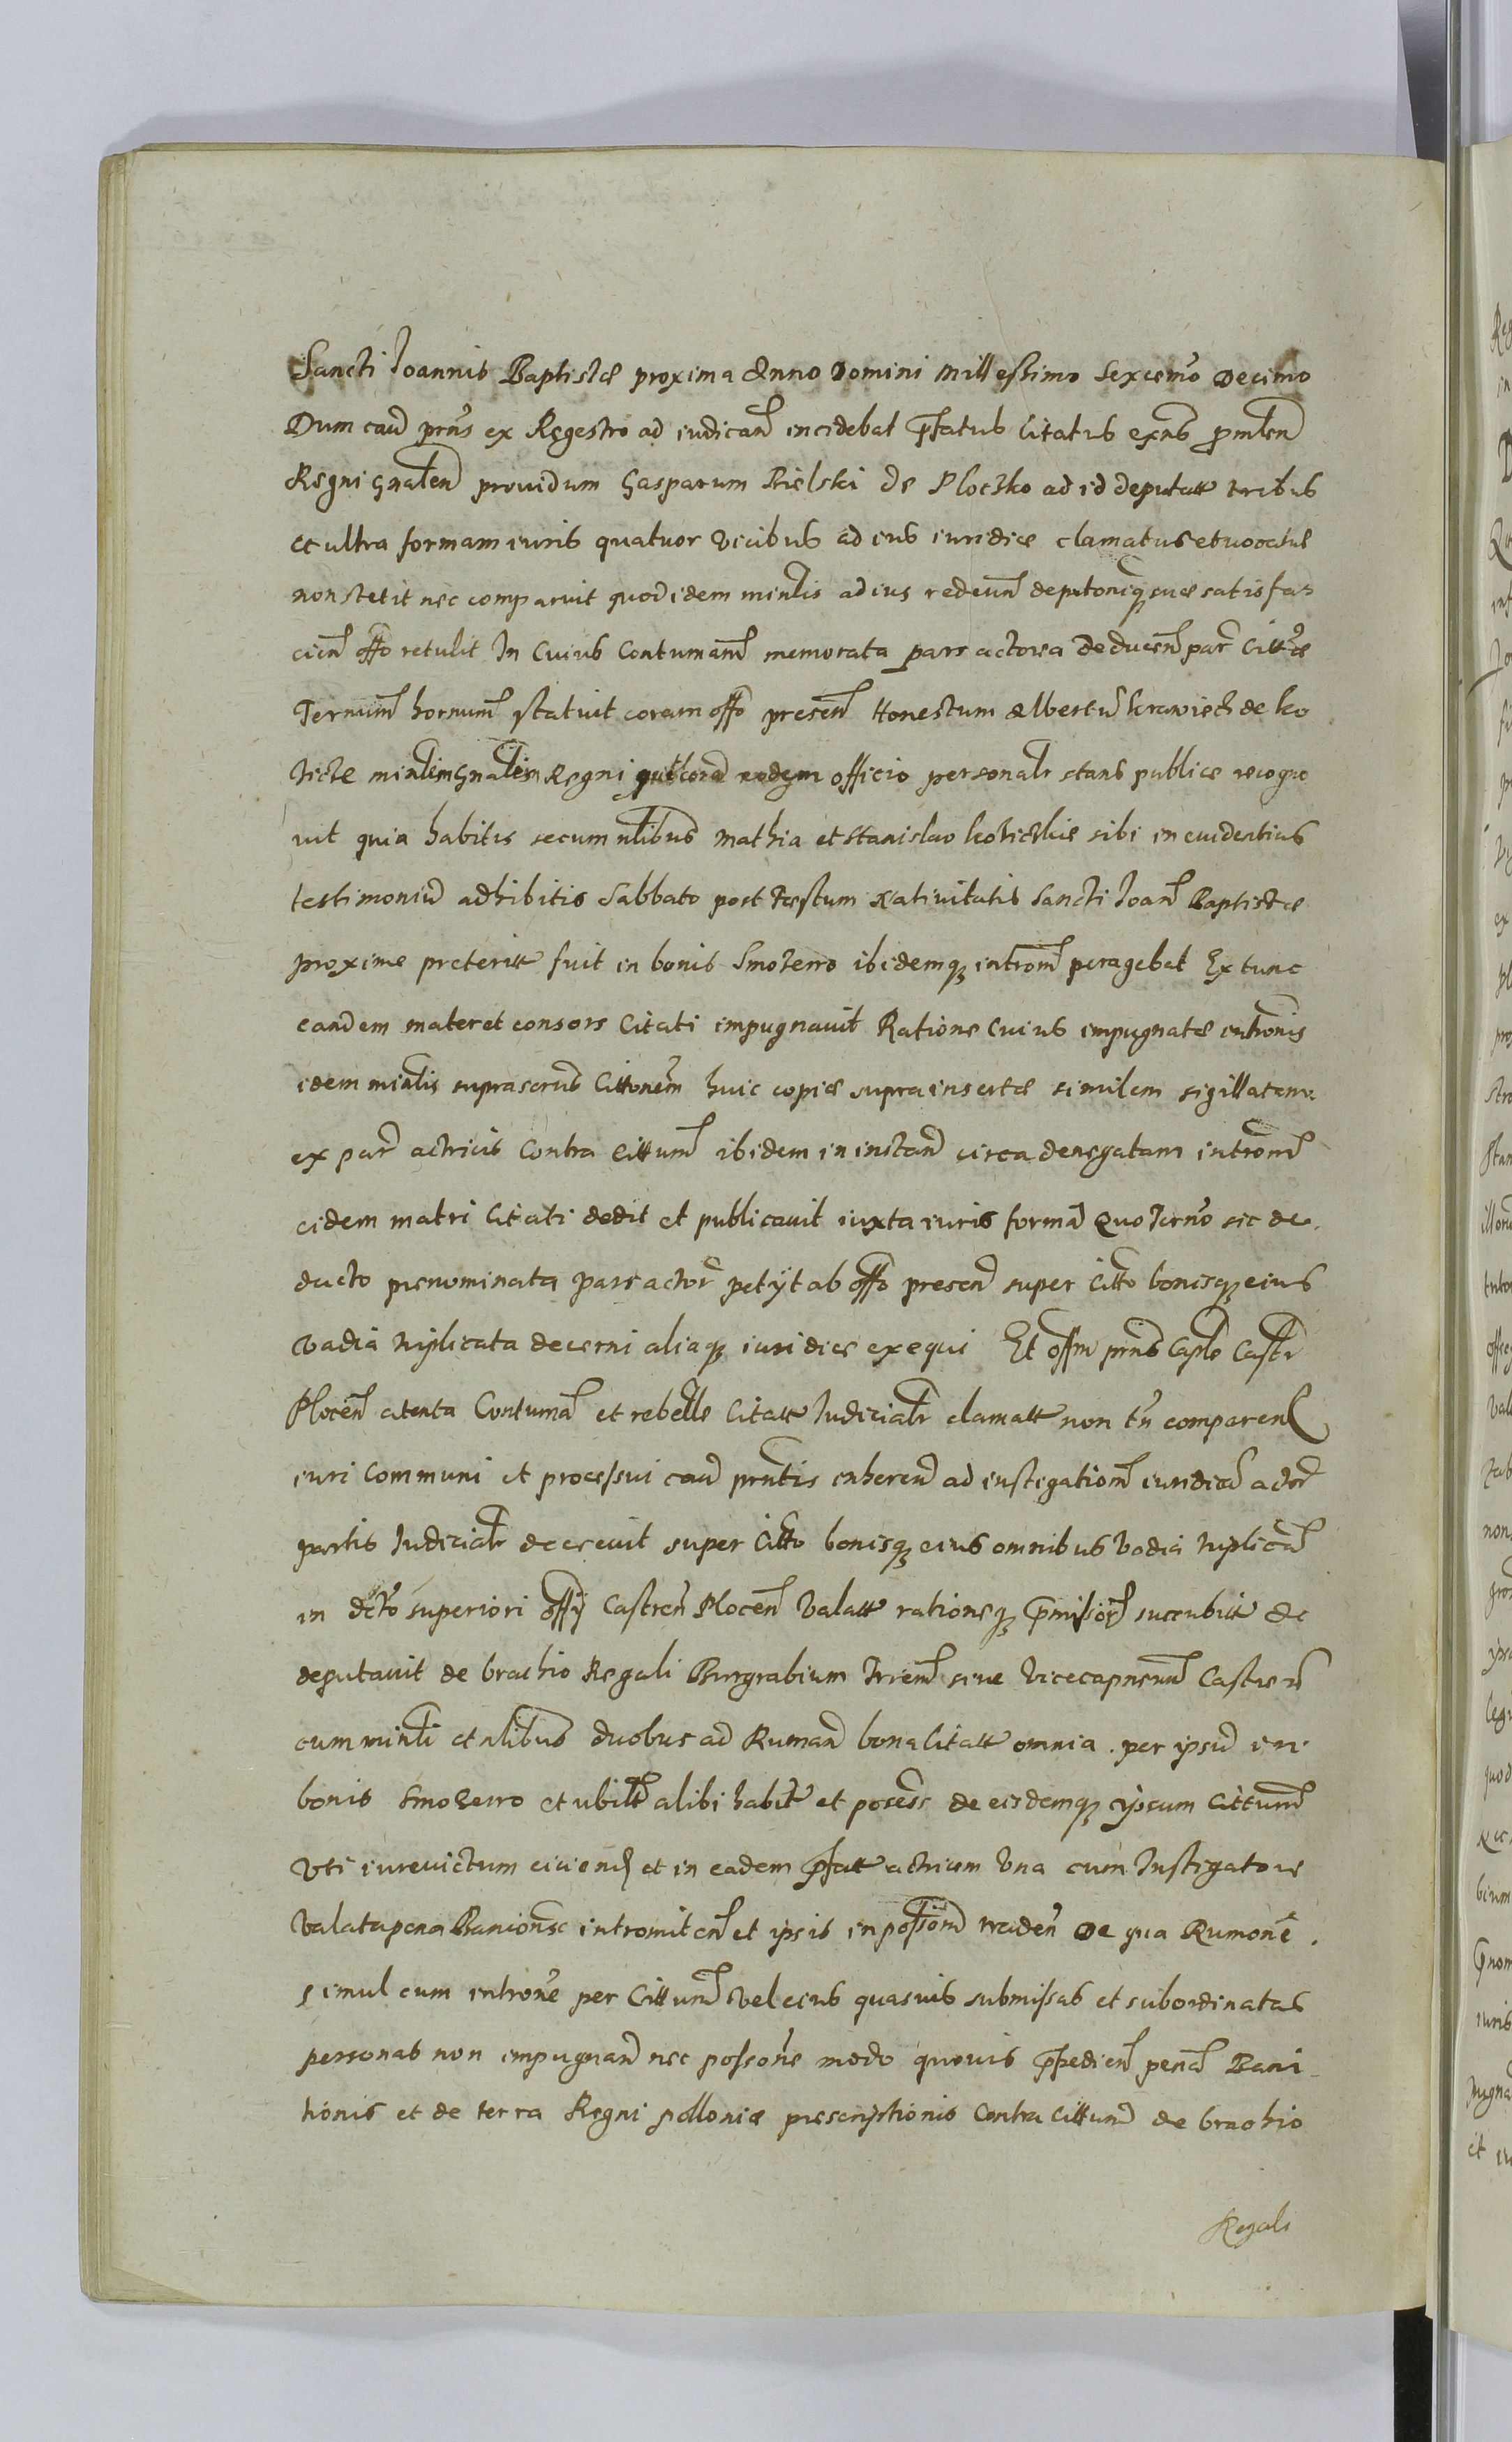 Sancti Joannis Baptistæ proxima Anno Domini Millessimo Sexcemo Decimo
Dum cau prns ex Regestro ad iudican incidebat pfatus Citatus exns pmlen
Regni gnalen providum Gasparum Bielski de Ploczko ad id deputatt tribus
et ultra formam iuris quatuor vicibus ad ius iuridice clamatus et vocatus
non stetit nec comparuit quod idem minlis ad ius redeun deputoniq suæ satisfa
cien offo retulit In Cuius Contuman memorata pars actorea deducen par Citt æ
Ternum hornum statuit coram offo presen Honestum Albertu krawiecz de ko
zicze minlem gnalem Regni qui cora eodem officio personalr stans publice recogno
vit quia habitis secum nlibus Mathia et Stanislao koziczkie sibi in evidentius
testimoniu adhibitis Sabbato post Festum Nativitatis Sancti Joan Baptistæ
proxime preteritt fuit in bonis Smozewo ibidemq introm peragebat Ex tunc
eandem mater et consors Citati impugnavit Ratione Cuius impugnatæ intronis
idem minlis suprascrus Cittonem huic copiæ supra insertæ similem sigillatam
ex par actricis Contra Cittum ibidem in instan circa denegatam introm
eidem matri Citati dedit et publicavit iuxta iuris forma Quo Terno sic de
ducto prenominata pars actor petyt ab offo presen super Citto bonisq eius
vadia triplicata decerni aliaq iuridice exequi Et offm prns Caple Castr
Plocen atenta Contuma et rebelle Citatt Judicialr clamatt non tn comparen
iuri Communi et processui cau prntis inheren ad instigation iuridica actor
partis Judicialr decrevit super Citto bonisq eius omnibus Vadia triplica
in dcto superiori offy Castren Plocen Valatt rationeq pmissor succubitt Ac
deputavit de brachio Regali Burgrabium Trrem sive Vicecapneum Castren
cum minli et nlibus duobus ad Ruman bona Citatt omnia per ipsu in
bonis Smozewo et ubilt alibi habitt et possess de eisdemq ipsum Cittum
Uti iurevictum eiicien et in eadem pfatt actricem Una cum Instigatore
Valata pena Banionis intromitten et ipsis in possom traden De qua Rumone
simul cum introne per Cittum vel eius quasvis submissas et subordinatas
personas non impugnan nec possone modo quovis ppedien pena Bani
tionis et de terra Regni polloniæ prescriptionis Contra Cittum de brachio
Regali